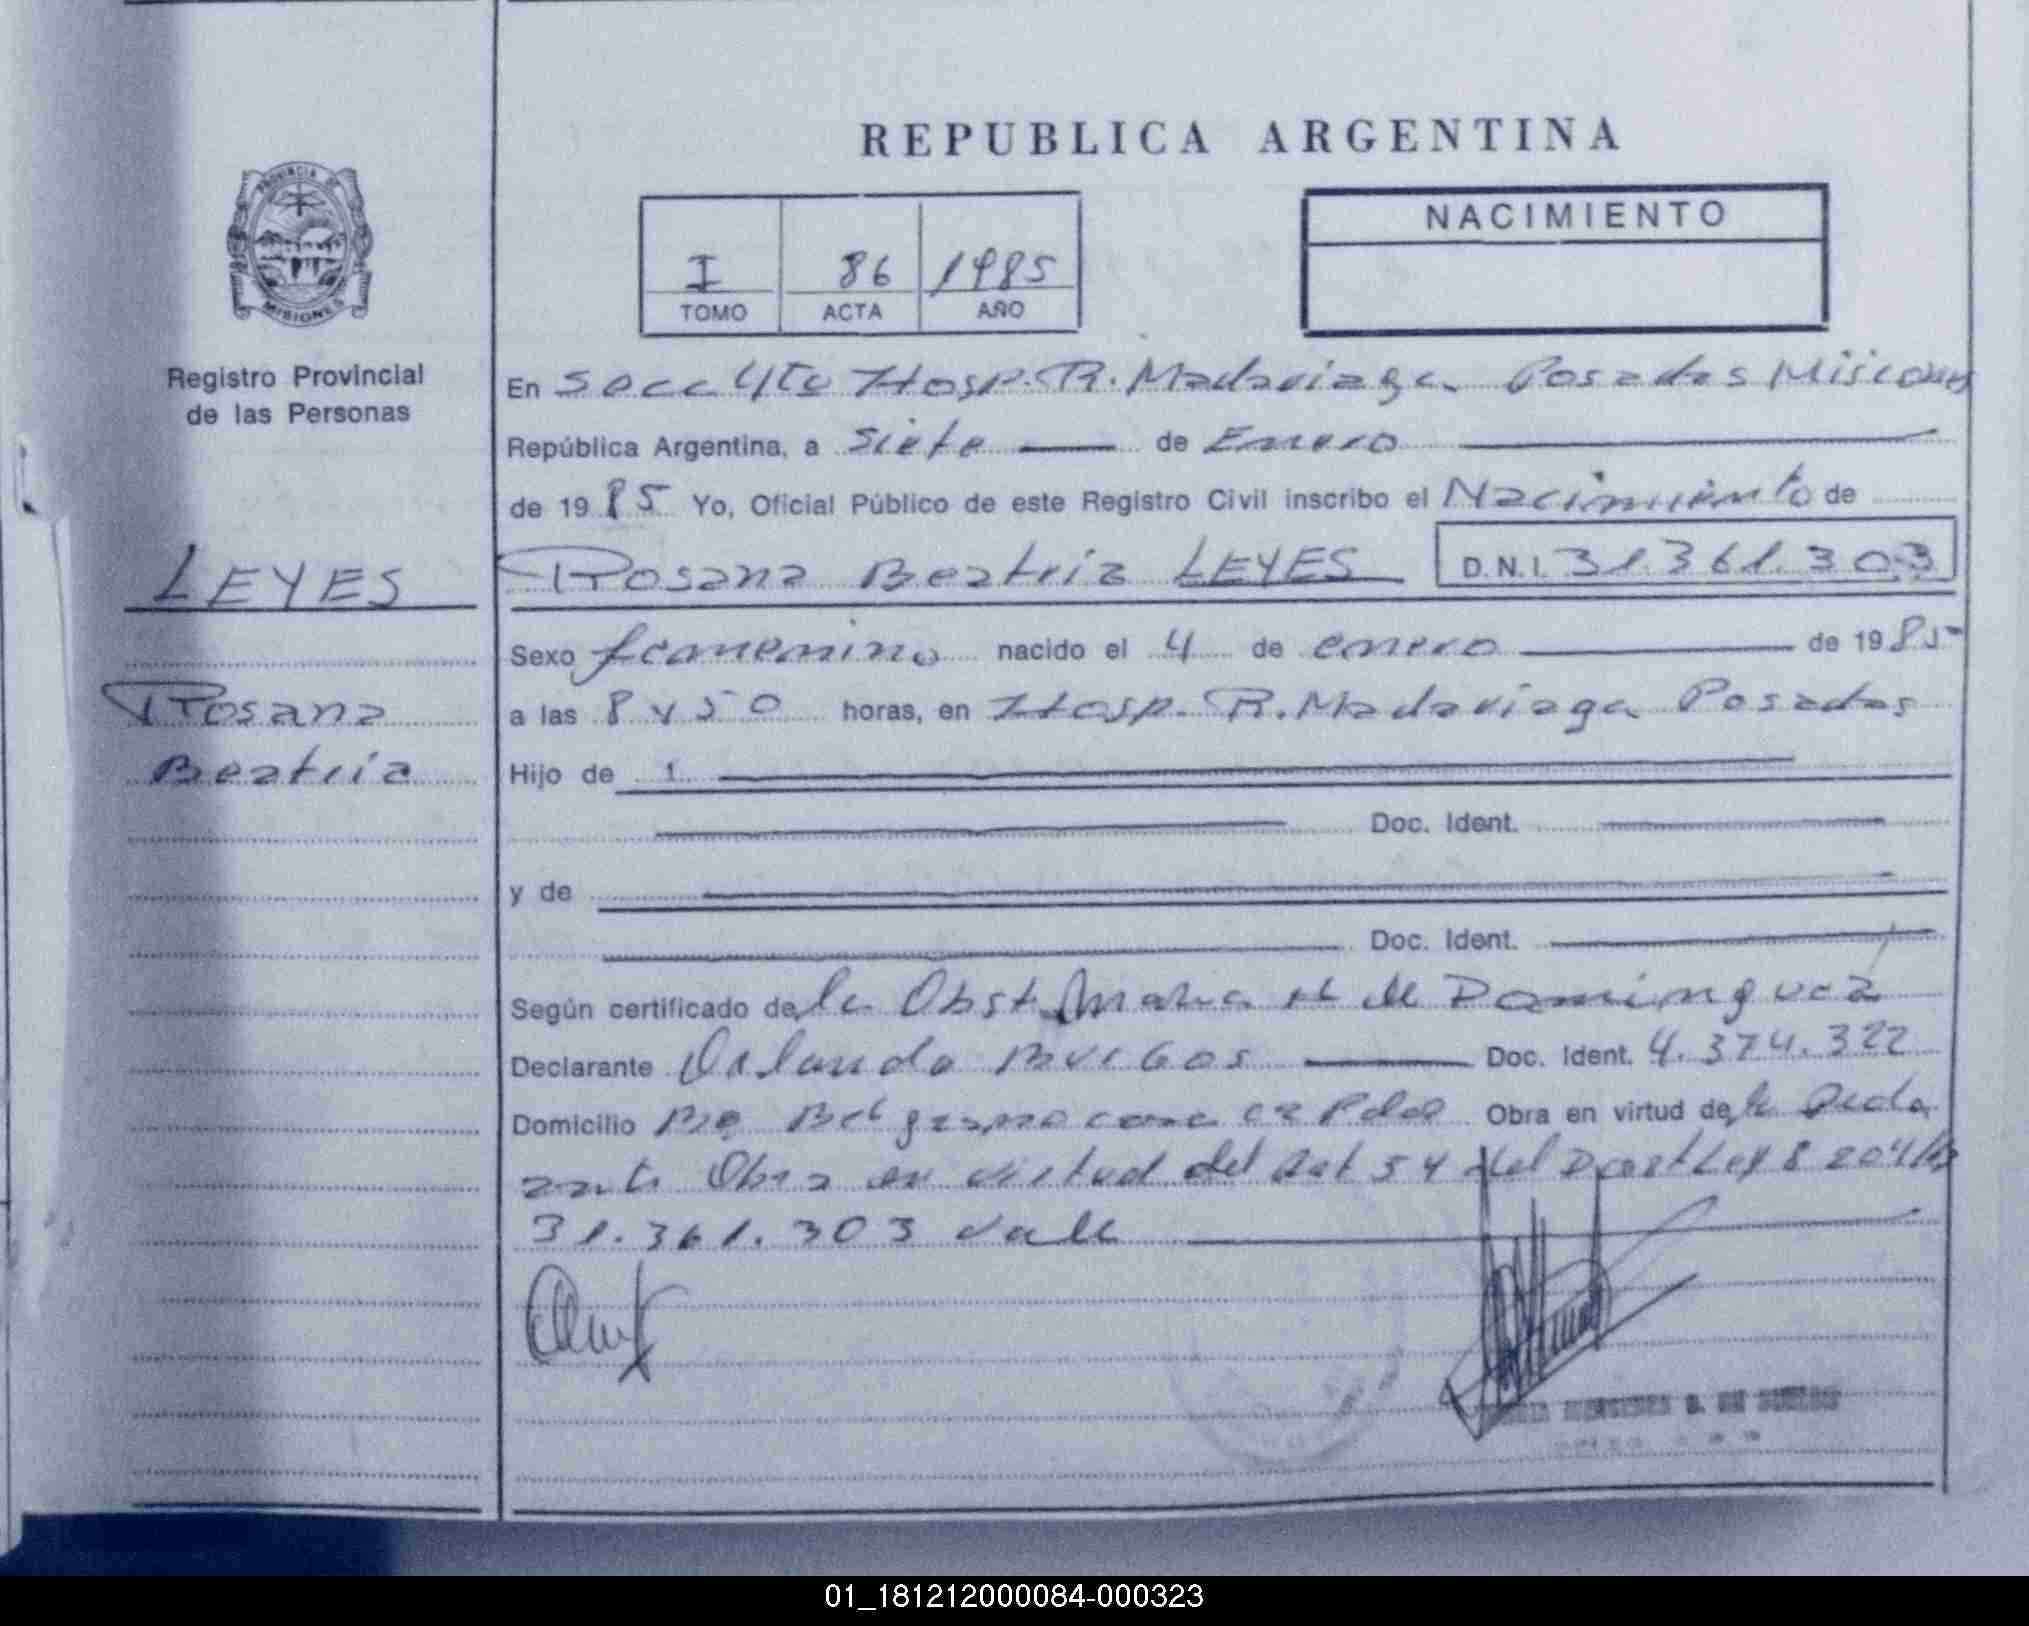 REPUBLICA ARGENTINA
PROVINCIA DE
MISIONES
I 86 1985
TOMO ACTA AÑO
NACIMIENTO
Registro Provincial
de las Personas
LEYES
Rosana
Beatriz
En Secc 4ta Hosp. R. Madariaga Posadas Misiones
República Argentina, a Siete de Enero
de 19 85 Yo, Oficial Público de este Registro Civil inscribo el Nacimiento de
Rosana Beatriz LEYES D.N.I. 31.361.303
Sexo femenino nacido el 4 de enero de 1985
a las 8 y 50 horas, en Hosp. R. Madariaga Posadas
Hijo de
Doc. Ident.
y de
Doc. Ident.
Según certificado de la Obst. Maria H de Dominguez
Declarante Orlando Doc. Ident. 4.374.322
Domicilio Bº Belgrano Obra en virtud de la Decla
rante Obra en virtud del Art 54 del Ley 8204/63
31.361.303 Vale
01_181212000084-000323